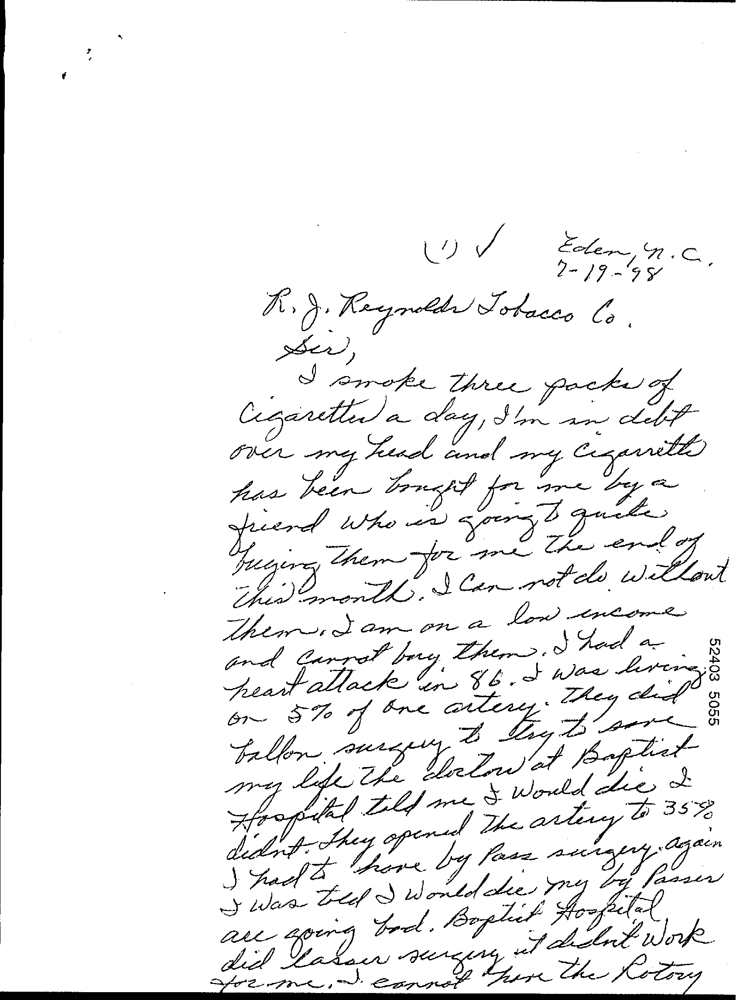 (1) ✓ Eden, N.C.
7-19-98
R. J. Reynolds Tobacco Co.
Sir,
I smoke three packs of
Cigarettes a day, I'm in debt
over my head and my Cigarretts
has been bought for me by a
friend who is going to quite
buying them for me the end of
this month. I Can not do without
them. I am on a low income
and cannot buy them. I had a
heart attack in 86. I was living
on 5% of one artery. They did
ballon surgury to try to save
my life the doctors at Baptist
Hospital told me I would die I
didnt. They opened the artery to 35%
I had to have by Pass surgery. again
I was told I would die my by Passes
are going bad. Baptist Hospital
did lasser surgery it didnt Work
for me. I cannot have the Rotory
52403 5055